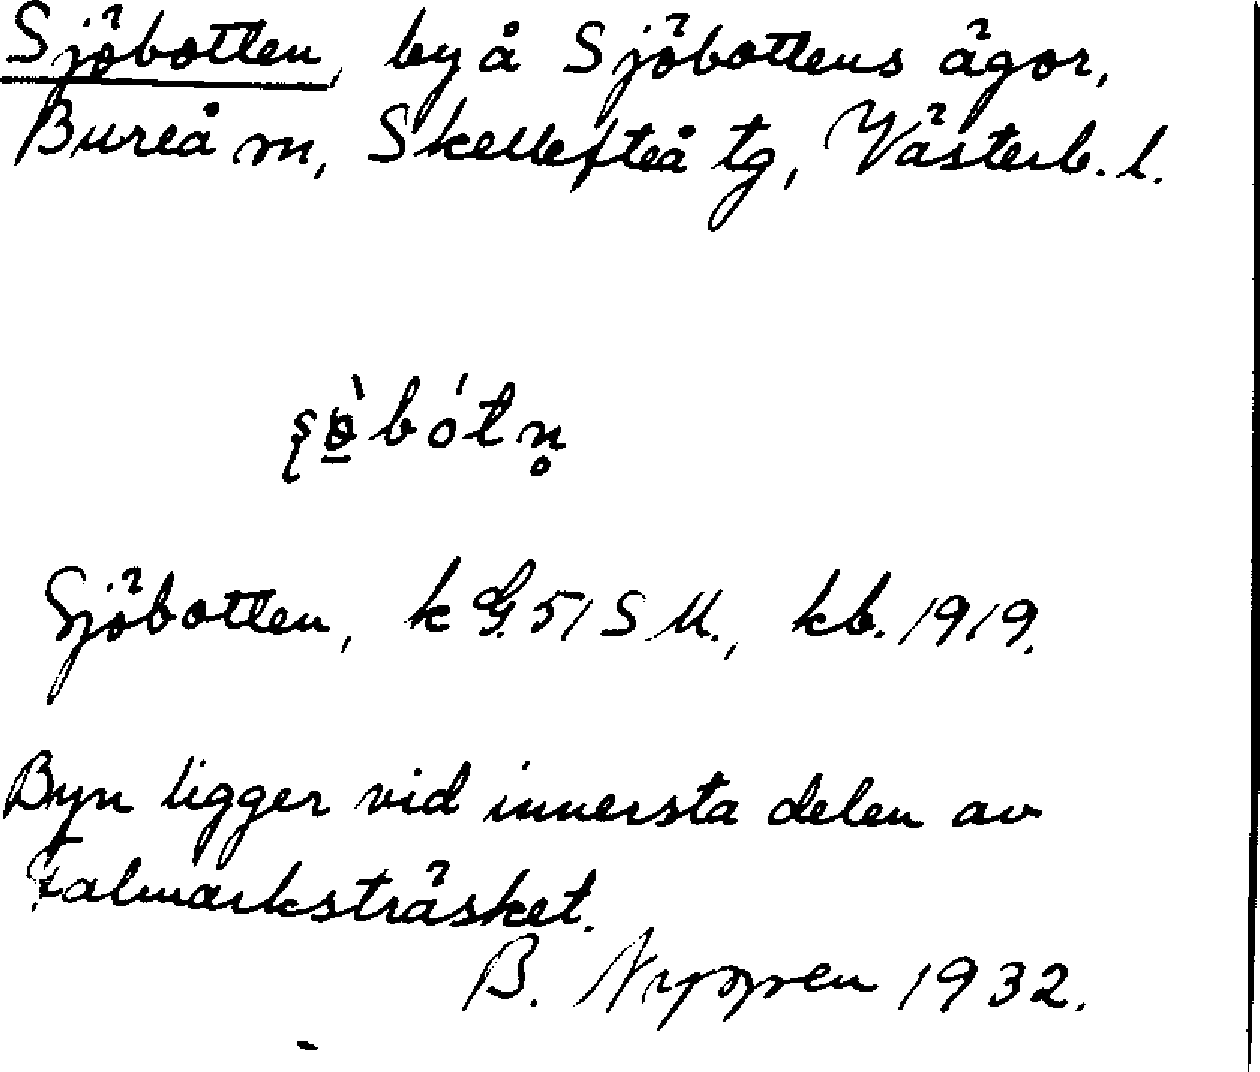 Sjöbotten, by å Sjöbottens ägor,
Bureå sn, Skellefteå tg, Västerb. l.
Sjöbotten, k G. 51 S M., kb. 1919.
Byn ligger vid innersta delen av
Falmarksträsket.
B. Nygren 1932.